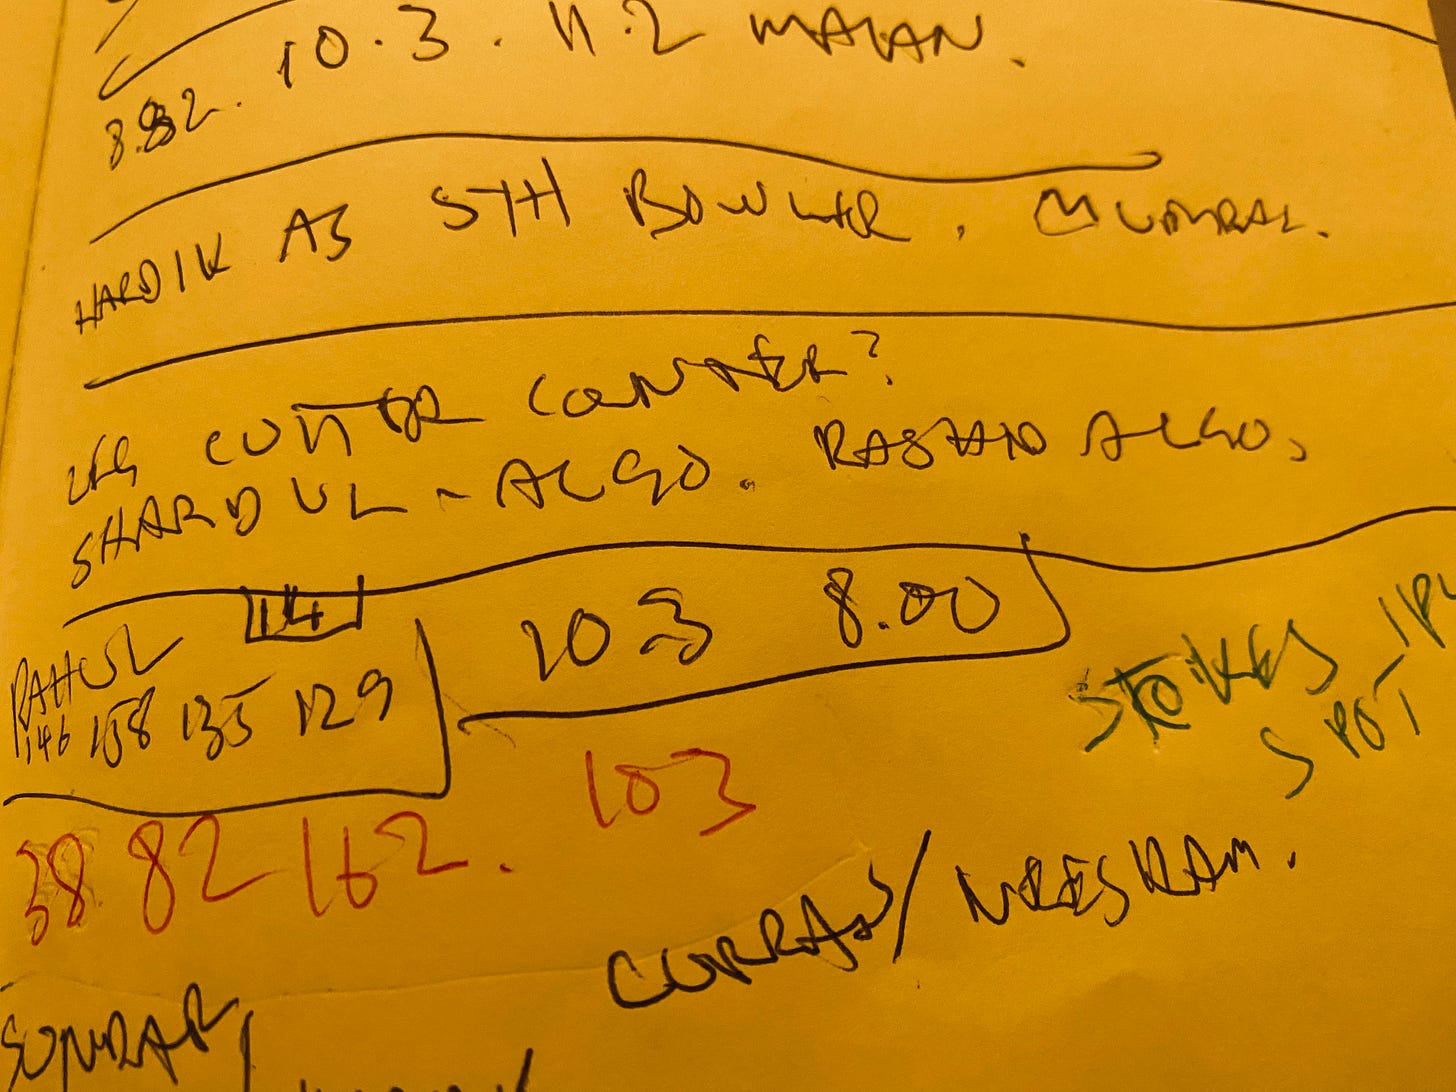 8.82. 10.3. 11.2 MALAN.
HARDIK AS 5TH BOWLER. MUMBAI.
LEG CUTTER COUNTER?
SHARDUL - ALGO. RASHID ALGO.
RAHUL 14
146 158 135 129
10.3 8.00
STOKES IPL
SPOT
38. 82 162. 103
CURRAN/
SUNDAR/